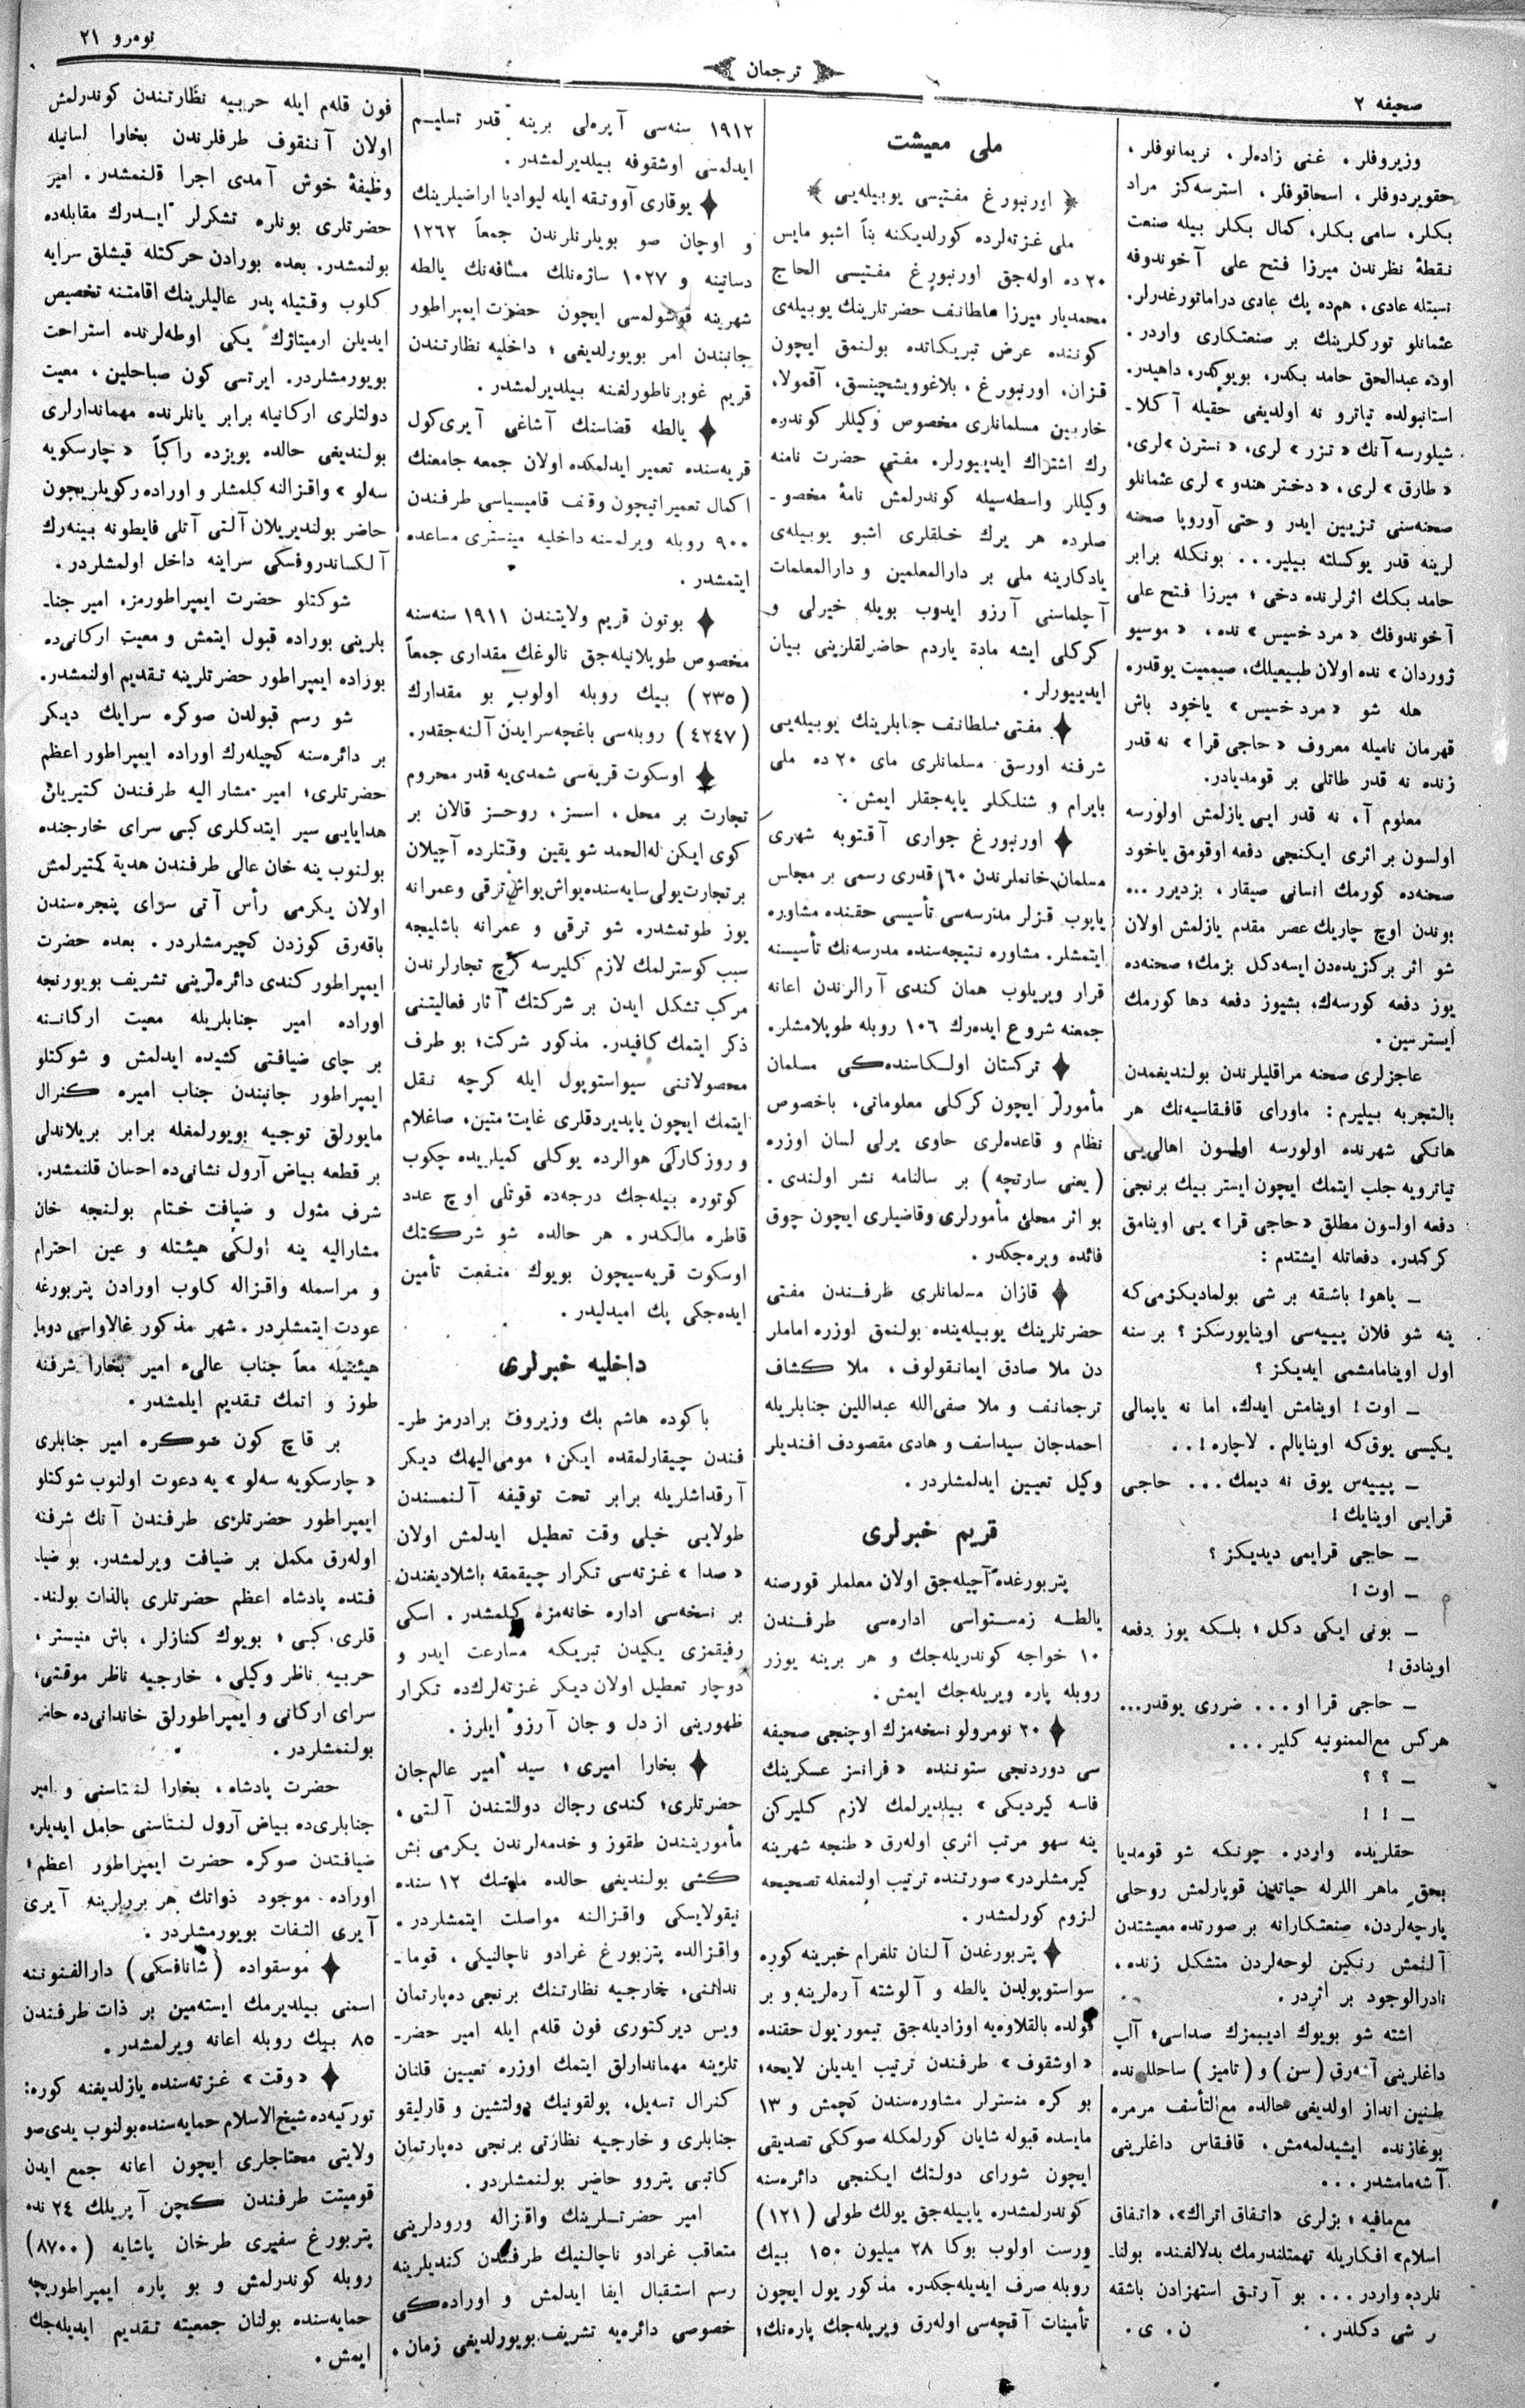 صحیفه ٢
ترجمان
نومرو ٢١
وزیروفلر، غنی زاده‌لر، نریمانوفلر،
حقوبردوفلر، اسحاقوفلر، استرسه‌کز مراد
بکلر، سامی بکلر، کمال بکلر بیله صنعت
نقطهٔ نظرندن میرزا فتح علی آخوندوفه
نسبتله عادی، هم‌ده پك عادی دراماتورغدرلر.
عثمانلو تورکلرینك بر صنعتکاری واردر.
اوده عبدالحق حامد بکدر، بویوکدر، داهیدر.
استانبولده تیاترو نه اولدیغی حقیله آکلا-
شیلورسه آنك «تزر» لری، «نسترن» لری،
«طارق» لری، «دختر هندو» لری عثمانلو
صحنه‌سنی تزیین ایدر و حتی آوروپا صحنه
لرینه قدر یوکسلته بیلیر... بونکله برابر
حامد بکك اثرلرنده دخی؛ میرزا فتح علی
آخوندوفك «مرد خسیس» نده، «موسیو
ژوردان» نده اولان طبیعیلك، صمیمیت یوقدر.
هله شو «مرد خسیس» یاخود باش
قهرمان نامیله معروف «حاجی قرا» نه قدر
زنده نه قدر طاتلی بر قومدیادر.
معلوم آ، نه قدر ایی یازلمش اولورسه
اولسون بر اثری ایکنجی دفعه اوقومق یاخود
صحنه‌ده کورمك انسانی صیقار، بزدیرر...
بوندن اوچ چاریك عصر مقدم یازلمش اولان
شو اثر برکزیده‌دن ایسه‌دکل بزمك؛ صحنه‌ده
یوز دفعه کورسه‌ك، بشیوز دفعه دها کورمك
ایسترسین.
عاجزلری صحنه مراقلیلرندن بولندیغمدن
بالتجربه بیلیرم: ماورای قافقاسیه‌نك هر
هانکی شهرنده اولورسه اولسون اهالی‌یی
تیاترویه جلب ایتمك ایچون ایستر بیك برنجی
دفعه اولسون مطلق «حاجی قرا» یی اوینامق
کرکدر. دفعاتله ایشتدم:
ــ یاهو! باشقه بر شی بولمادیکزمی که
ینه شو فلان پییه‌سی اوینایورسکز؟ بر سنه
اول اوینامامشمی ایدیکز؟
ــ اوت! اوینامش ایدك، اما نه یاپمالی
یکیسی یوق‌که اوینایالم. لاچاره!..
ــ پییه‌س یوق نه دیمك... حاجی
قرایی اوینایك!
ــ حاجی قرایمی دیدیکز؟
ــ اوت!
ــ بونی ایکی دکل؛ بلکه یوز دفعه
اوینادق!
ــ حاجی قرا او... ضرری یوقدر...
هرکس مع‌الممنونیه کلیر...
ــ ؟ ؟
ــ ! !
حقلریده واردر. چونکه شو قومدیا
بحق ماهر اللرله حیاتدن قوپارلمش روحلی
پارچه‌لردن، صنعتکارانه بر صورتده معیشتدن
آلنمش رنکین لوحه‌لردن متشکل زنده،
نادرالوجود بر اثردر.
اشته شو بویوك ادیبمزك صداسی؛ آلپ
داغلرینی آشه‌رق (سن) و (تامیز) ساحللرنده
طنین انداز اولدیغی حالده مع‌التأسف مرمره
بوغازنده ایشیدلمه‌مش، قافقاس داغلرینی
آشه‌مامشدر...
مع‌مافیه؛ بزلری «اتفاق اتراك»، «اتفاق
اسلام» افکاریله تهمتلندرمك بدلالغنده بولنا-
نلرده واردر... بو آرتق استهزادن باشقه
ر شی دکلدر.
ن. ی.
ملی معیشت
اورنبورغ مفتیسی یوبیله‌یی
ملی غزته‌لرده کورلدیکنه بناً اشبو مایس
٢٠ ده اوله‌جق اورنبورغ مفتیسی الحاج
محمدیار میرزا سلطانف حضرتلرینك یوبیله‌ی
کوننده عرض تبریکاتده بولنمق ایچون
قزان، اورنبورغ، بلاغوویشچینسق، آقمولا،
خاربین مسلمانلری مخصوص وکیللر کونده‌ره
رك اشتراك ایدییورلر. مفتی حضرت نامنه
وکیللر واسطه‌سیله کوندرلمش نامهٔ مخصو-
صلرده هر یرك خلقلری اشبو یوبیله‌ی
یادکارینه ملی بر دارالمعلمین و دارالمعلمات
آچلماسنی آرزو ایدوب بویله خیرلی و
کرکلی ایشه مادة یاردم حاضرلقلرینی بیان
ایدییورلر.
مفتی سلطانف جنابلرینك یوبیله‌یی
شرفنه اورسق مسلمانلری مای ٢٠ ده ملی
بایرام و شنلکلر یاپه‌جقلر ایمش.
اورنبورغ جواری آقتوبه شهری
مسلمان خانملرندن ١٦٠ قدری رسمی بر مجلس
یاپوب قزلر مدرسه‌سی تأسیسی حقنده مشاوره
ایتمشلر. مشاوره نتیجه‌سنده مدرسه‌نك تأسیسنه
قرار ویریلوب همان کندی آرالرندن اعانه
جمعنه شروع ایده‌رك ١٠٦ روبله طوپلامشلر.
ترکستان اولکاسنده‌کی مسلمان
مأمورلر ایچون کرکلی معلوماتی، باخصوص
نظام و قاعده‌لری حاوی یرلی لسان اوزره
(یعنی سارتچه) بر سالنامه نشر اولندی.
بو اثر محلی مأمورلری وقاضیلری ایچون چوق
فائده ویره‌جکدر.
قازان مسلمانلری طرفندن مفتی
حضرتلرینك یوبیله‌ینده بولنمق اوزره اماملر
دن ملا صادق ایمانقولوف، ملا کشاف
ترجمانف و ملا صفی‌الله عبداللین جنابلریله
احمدجان سیداسف و هادی مقصودف افندیلر
وکیل تعیین ایدلمشلردر.
قریم خبرلری
پتربورغده آچیله‌جق اولان معلملر قورصنه
یالطه زمستواسی اداره‌سی طرفندن
١٠ خواجه کوندریله‌جك و هر برینه یوزر
روبله پاره ویریله‌جك ایمش.
٢٠ نومرولو نسخه‌مزك اوچنجی صحیفه
سی دوردنجی ستوننده «فرانسز عسکرینك
فاسه کیردیکی» بیلدیرلمك لازم کلیرکن
ینه سهو مرتب اثری اوله‌رق «طنجه شهرینه
کیرمشلردر» صورتنده ترتیب اولنمغله تصحیحه
لزوم کورلمشدر.
پتربورغدن آلنان تلغرام خبرینه کوره
سواستوپولدن یالطه و آلوشته آره‌لرینه و بر
قولده بالقلاوه‌یه اوزادیله‌جق تیمور یول حقنده
«اوشقوف» طرفندن ترتیب ایدیلن لایحه؛
بو کره منسترلر مشاوره‌سندن کچمش و ١٣
مایسده قبوله شایان کورلمکله صوککی تصدیقی
ایچون شورای دولتك ایکنجی دائره‌سنه
کوندرلمشدر. یاپیله‌جق یولك طولی (١٢١)
ورست اولوب بوکا ٢٨ میلیون ١٥٠ بیك
روبله صرف ایدیله‌جکدر. مذکور یول ایچون
تأمینات آقچه‌سی اوله‌رق ویریله‌جك پاره‌نك؛
١٩١٢ سنه‌سی آپره‌لی برینه قدر تسلیم
ایدلمسی اوشقوفه بیلدیرلمشدر.
یوقاری آووتقه ایله لیوادیا اراضیلرینك
و اوچان صو بویلرنلرندن جمعاً ١٢٦٢
دساتینه و ١٠٢٧ ساژه‌نلك مسافه‌نك یالطه
شهرینه قوشولمسی ایچون حضرت ایمپراطور
جانبندن امر بویورلدیغی؛ داخلیه نظارتندن
قریم غوبرناطورلغنه بیلدیرلمشدر.
یالطه قضاسنك آشاغی آیری‌کول
قریه‌سنده تعمیر ایدلمکده اولان جمعه جامعنك
اکمال تعمیراتیچون وقف قامیسیاسی طرفندن
٩٠٠ روبله ویرلمسنه داخلیه مینستری مساعده
ایتمشدر.
بوتون قریم ولایتندن ١٩١١ سنه‌سنه
مخصوص طوپلانیله‌جق نالوغك مقداری جمعاً
(٢٣٥) بیك روبله اولوب بو مقدارك
(٤٢٤٧) روبله‌سی باغچه‌سرایدن آلنه‌جقدر.
اوسکوت قریه‌سی شمدی‌یه قدر محروم
تجارت بر محل، اسسز، روحسز قالان بر
کوی ایکن له‌الحمد شو یقین وقتلرده آچیلان
بر تجارت یولی سایه‌سنده یواش یواش ترقی وعمرانه
یوز طوتمشدر. شو ترقی و عمرانه باشلیجه
سبب کوسترلمك لازم کلیرسه کرچ تجارلرندن
مرکب تشکل ایدن بر شرکتك آثار فعالیتنی
ذکر ایتمك کافیدر. مذکور شرکت؛ بو طرف
محصولاتنی سیواستوپول ایله کرچه نقل
ایتمك ایچون یاپدیردقلری غایت متین، صاغلام
و روزکارلی هوالرده یوکلی کمیلریده چکوب
کوتوره بیله‌جك درجه‌ده قوتلی اوچ عدد
قاطره مالکدر. هر حالده شو شرکتك
اوسکوت قریه‌سیچون بویوك منفعت تأمین
ایده‌جکی پك امیدلیدر.
داخلیه خبرلری
باکوده هاشم بك وزیروف برادرمز طر-
فندن چیقارلمقده ایکن؛ مومی‌الیهك دیکر
آرقداشلریله برابر تحت توقیفه آلنمسندن
طولایی خیلی وقت تعطیل ایدلمش اولان
«صدا» غزته‌سی تکرار چیقمقه باشلادیغندن
بر نسخه‌سی اداره خانه‌مزه کلمشدر. اسکی
رفیقمزی یکیدن تبریکه مسارعت ایدر و
دوچار تعطیل اولان دیکر غزته‌لرك‌ده تکرار
ظهورینی از دل و جان آرزو ایلرز.
بخارا امیری؛ سید امیر عالم‌جان
حضرتلری؛ کندی رجال دولتندن آلتی،
مأمورینندن طقوز و خدمه‌لرندن یکرمی بش
کشی بولندیغی حالده مایسك ١٢ سنده
نیقولایسکی واقزالنه مواصلت ایتمشلردر.
واقزالده پتربورغ غرادو ناچالنیکی، قوما-
ندانی، خارجیه نظارتنك برنجی ده‌پارتمان
ویس دیرکتوری فون قله‌م ایله امیر حضر-
تلرینه مهماندارلق ایتمك اوزره تعیین قلنان
کنرال تسه‌یل، پولقونیك دولتشین و قارلیقو
جنابلری و خارجیه نظارتی برنجی ده‌پارتمان
کاتبی پتروو حاضر بولنمشلردر.
امیر حضرتلرینك واقزاله ورودلرینی
متعاقب غرادو ناچالنیك طرفندن کندیلرینه
رسم استقبال ایفا ایدلمش و اوراده‌کی
خصوصی دائره‌یه تشریف بویورلدیغی زمان،
فون قله‌م ایله حربیه نظارتندن کوندرلمش
اولان آننقوف طرفلرندن بخارا لسانیله
وظیفهٔ خوش آمدی اجرا قلنمشدر. امیر
حضرتلری بونلره تشکرلر ایدرك مقابله‌ده
بولنمشدر. بعده بورادن حرکتله قیشلق سرایه
کلوب وقتیله پدر عالیلرینك اقامتنه تخصیص
ایدیلن ارمیتاژك یکی اوطه‌لرنده استراحت
بویورمشلردر. ایرتسی کون صباحلین، معیت
دولتلری ارکانیله برابر یانلرنده مهماندارلری
بولندیغی حالده پویزده راکباً «چارسکویه
سه‌لو» واقزالنه کلمشلر و اوراده رکوبلریچون
حاضر بولندیریلان آلتی آتلی فایطونه بینه‌رك
آلکساندروفسکی سراینه داخل اولمشلردر.
شوکتلو حضرت ایمپراطورمز، امیر جنا-
بلرینی بوراده قبول ایتمش و معیت ارکانی‌ده
بوراده ایمپراطور حضرتلرینه تقدیم اولنمشدر.
شو رسم قبولدن صوکره سرایك دیکر
بر دائره‌سنه کچیله‌رك اوراده ایمپراطور اعظم
حضرتلری؛ امیر مشارالیه طرفندن کتیریلن
هدایایی سیر ایتدکلری کبی سرای خارجنده
بولنوب ینه خان عالی طرفندن هدیة کتیرلمش
اولان یکرمی رأس آتی سرای پنجره‌سندن
باقه‌رق کوزدن کچیرمشلردر. بعده حضرت
ایمپراطور کندی دائره‌لرینی تشریف بویورنجه
اوراده امیر جنابلریله معیت ارکاننه
بر چای ضیافتی کشیده ایدلمش و شوکتلو
ایمپراطور جانبندن جناب امیره کنرال
مایورلق توجیه بویورلمغله برابر بریلانتلی
بر قطعه بیاض آرول نشانی‌ده احسان قلنمشدر.
شرف مثول و ضیافت ختام بولنجه خان
مشارالیه ینه اولکی هیئتله و عین احترام
و مراسمله واقزاله کلوب اورادن پتربورغه
عودت ایتمشلردر. شهر مذکور غالاواسی دوما
هیئتیله معاً جناب عالیء امیر بخارا شرفنه
طوز و اتمك تقدیم ایلمشدر.
بر قاچ کون صوکره امیر جنابلری
«چارسکویه سه‌لو» یه دعوت اولنوب شوکتلو
ایمپراطور حضرتلری طرفندن آنك شرفنه
اوله‌رق مکمل بر ضیافت ویرلمشدر. بو ضیا-
فتده پادشاه اعظم حضرتلری بالذات بولند-
قلری کبی؛ بویوك کنازلر، باش منیستر،
حربیه ناظر وکیلی، خارجیه ناظر موقتی،
سرای ارکانی و ایمپراطورلق خاندانی‌ده حاضر
بولنمشلردر.
حضرت پادشاه، بخارا لنتاسنی و امیر
جنابلری‌ده بیاض آرول لنتاسنی حامل ایدیلر.
ضیافتدن صوکره حضرت ایمپراطور اعظم؛
اوراده موجود ذواتك هر بررلرینه آیری
آیری التفات بویورمشلردر.
موسقواده (شانافسکی) دارالفنوننه
اسمنی بیلدیرمك ایسته‌مین بر ذات طرفندن
٨٥ بیك روبله اعانه ویرلمشدر.
«وقت» غزته‌سنده یازلدیغنه کوره:
تورکیه‌ده شیخ‌الاسلام حمایه‌سنده بولنوب یدی صو
ولایتی محتاجلری ایچون اعانه جمع ایدن
قومیتت طرفندن کچن آپریلك ٢٤ نده
پتربورغ سفیری طرخان پاشایه (٨٧٠٠)
روبله کوندرلمش و بو پاره ایمپراطوریچه
حمایه‌سنده بولنان جمعیته تقدیم ایدیله‌جك
ایمش.